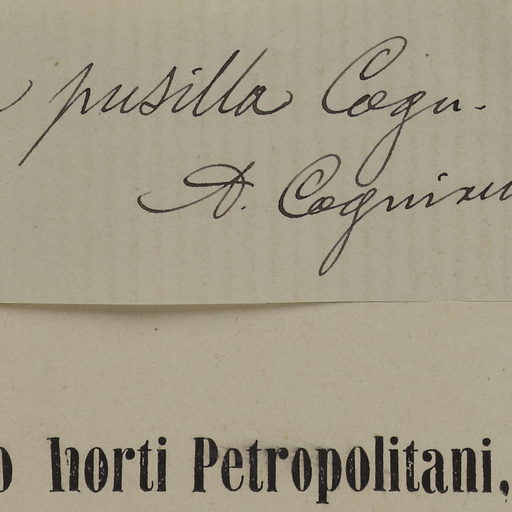 pusilla Cogn.
A. Cogniau
o horti Petropolitani,